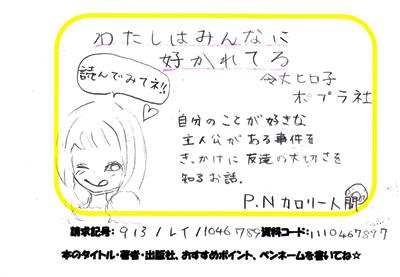 わたしはみんなに
好かれてる
令丈ヒロ子
ポプラ社
読んでみてネ!!
自分のことが好きな
主人公がある事件を
きっかけに友達の大切さを
知るお話。
P.Nカロリー人間
請求記号: 913/レイ/1046789 資料コード: 1110467897
本のタイトル・著者・出版社、おすすめポイント、ペンネームを書いてね☆